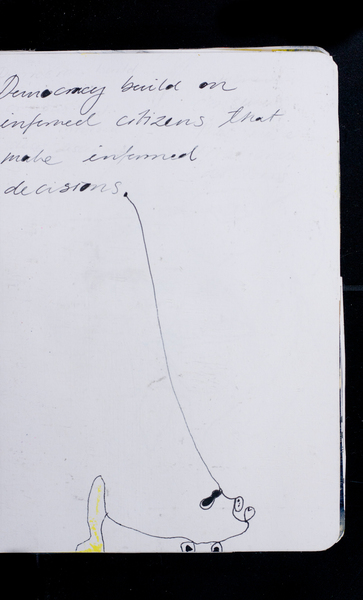 Democracy build on
informed citizens that
make informed
decisions.